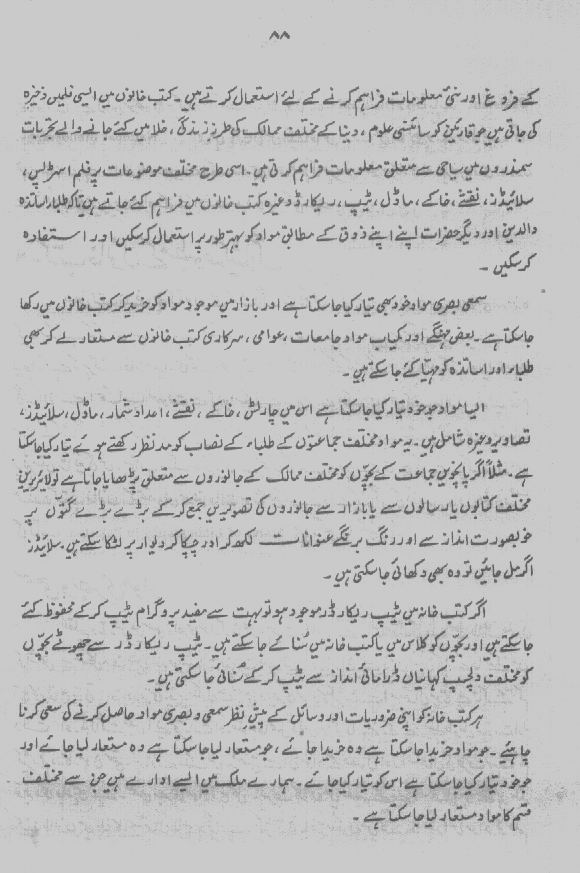 ۸۸
کے فروغ اور نئی معلومات فراہم کرنے کے لئے استعمال کرتے ہیں۔ کتب خانوں میں ایسی فلمیں ذخیرہ
کی جاتی ہیں جو قارئین کو سائنسی علوم، دنیا کے مختلف ممالک کی طرز زندگی، خلا میں کئے جانے والے تجربات
سمندروں میں سیاحی سے متعلق معلومات فراہم کرتی ہیں۔ اسی طرح مختلف موضوعات پر فلم اسٹرپس،
سلائیڈز، نقشے، خاکے، ماڈل، ٹیپ، ریکارڈ وغیرہ کتب خانوں میں فراہم کئے جاتے ہیں تاکہ طلباء اساتذہ
والدین اور دیگر حضرات اپنے اپنے ذوق کے مطابق مواد کو بہتر طور پر استعمال کرسکیں اور استفادہ
کرسکیں۔
سمعی بصری مواد خود بھی تیار کیا جاسکتا ہے اور بازار میں موجود مواد کو خرید کر کتب خانوں میں رکھا
جاسکتا ہے۔ بعض مہنگے اور کمیاب مواد جامعات، عوامی، سرکاری کتب خانوں سے مستعار لے کر بھی
طلباء اور اساتذہ کو مہیّا کئے جاسکتے ہیں۔
ایسا مواد جو خود تیار کیا جاسکتا ہے اس میں چارٹس، خاکے، نقشے، اعداد شمار، ماڈل، سلائیڈز،
تصاویر وغیرہ شامل ہیں۔ یہ مواد مختلف جماعتوں کے طلباء کے نصاب کو مدنظر رکھتے ہوئے تیار کیا جاسکتا
ہے۔ مثلاً اگر پانچویں جماعت کے بچّوں کو مختلف ممالک کے جانوروں سے متعلق پڑھایا جاتا ہے تو لائبریرین
مختلف کتابوں یا رسالوں سے یا بازار سے جانوروں کی تصویریں جمع کرکے بڑے بڑے گتّوں پر
خوبصورت انداز سے اور رنگ برنگے عنوانات لکھ کر اور چپکا کر دیوار پر لٹکا سکتے ہیں۔ سلائیڈز
اگر مل جائیں تو وہ بھی دکھائی جاسکتی ہیں۔
اگر کتب خانہ میں ٹیپ ریکارڈر موجود ہو تو بہت سے مفید پروگرام ٹیپ کرکے محفوظ کئے
جاسکتے ہیں اور بچّوں کو کلاس میں یا کتب خانہ میں سُنائے جاسکتے ہیں۔ ٹیپ ریکارڈر سے چھوٹے بچّوں
کو مختلف دلچسپ کہانیاں ڈرامائی انداز سے ٹیپ کرکے سُنائی جاسکتی ہیں۔
ہر کتب خانہ کو اپنی ضروریات اور وسائل کے پیش نظر سمعی و بصری مواد حاصل کرنے کی سعی کرنا
چاہیئے۔ جو مواد خریدا جاسکتا ہے وہ خریدا جائے، جو مستعار لیا جاسکتا ہے وہ مستعار لیا جائے اور
جو خود تیار کیا جاسکتا ہے اس کو تیار کیا جائے۔ ہمارے ملک میں ایسے ادارے ہیں جن سے مختلف
قسم کا مواد مستعار لیا جاسکتا ہے۔